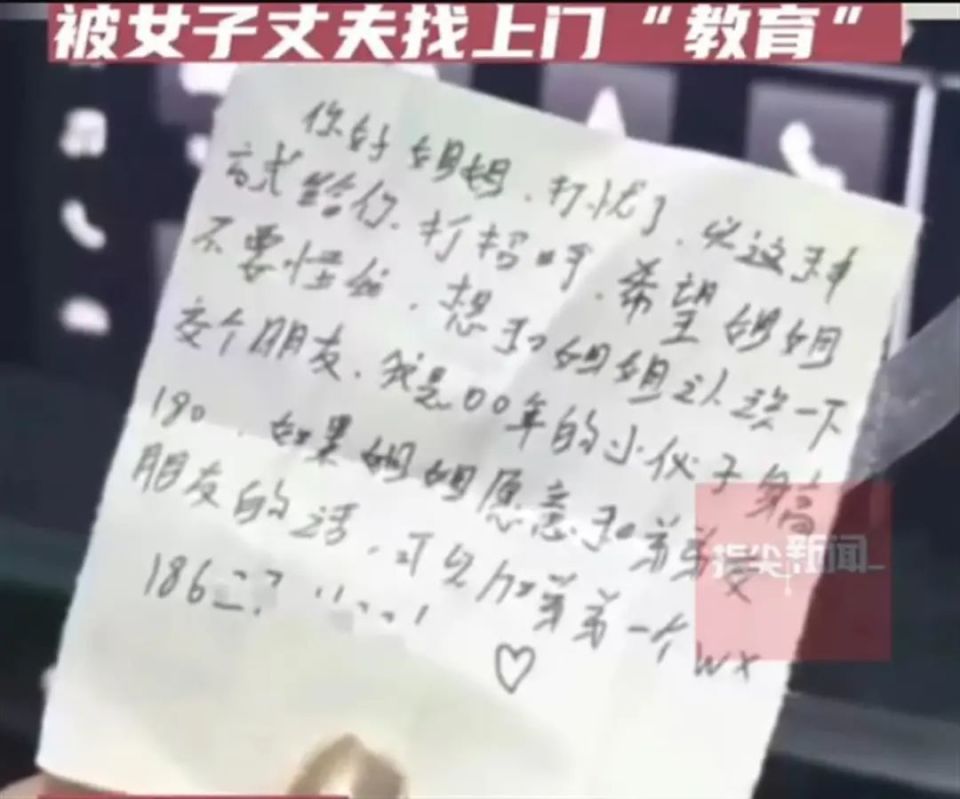 被女子丈夫找上门“教育”
你好姐姐、打忧了、以这种
方式给你、打招呼、希望姐姐
不要怪我、想和姐姐认识一下
交个朋友、我是00年的小伙子身高
180、如果姐姐愿意和弟弟交
朋友的话、可以加弟弟一个wx
186
♡
指尖新闻